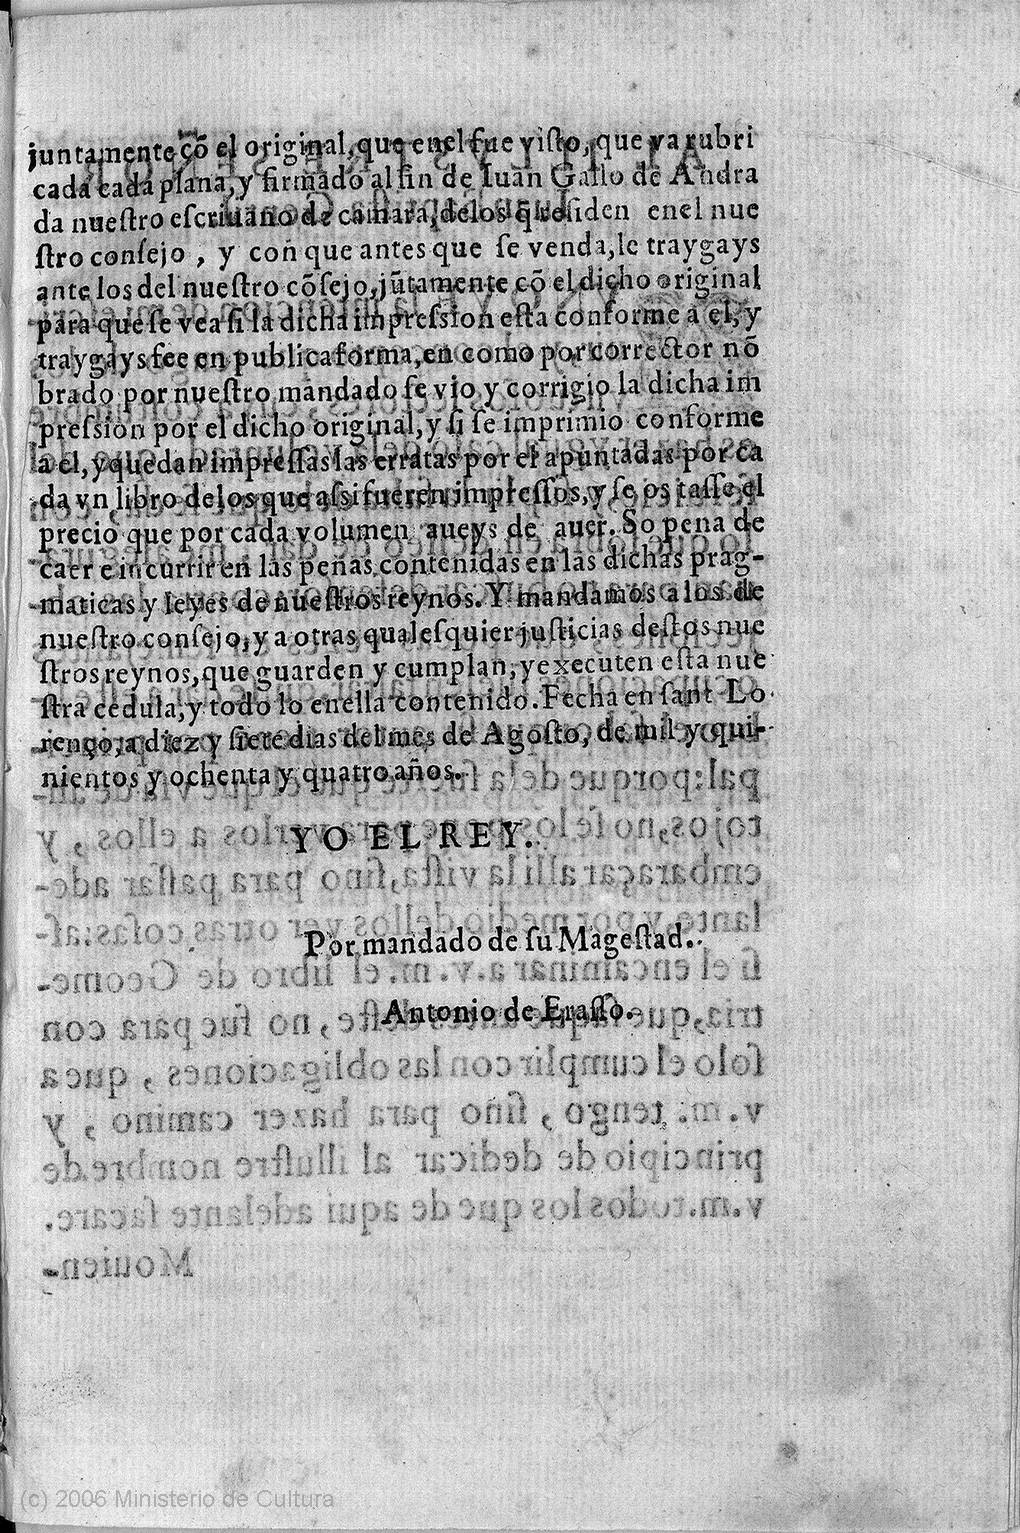 juntamente cõ el original, que enel fue visto, que va rubri
cada cada plana, y firmado al fin de Iuan Gallo de Andra
da nuestro escriuano de camara, delos q̃ residen enel nue
stro consejo, y con que antes que se venda, le traygays
ante los del nuestro cõsejo, jũtamente cõ el dicho original
para que se vea si la dicha impression esta conforme a el, y
traygays fee en publica forma, en como por corrector nõ
brado por nuestro mandado se vio y corrigio la dicha im
pression por el dicho original, y si se imprimio conforme
a el, y quedan impressas las erratas por el apuntadas por ca
da vn libro delos que assi fueren impressos, y se os tasse el
precio que por cada volumen aueys de auer. So pena de
caer e incurrir en las penas contenidas en las dichas prag-
maticas y leyes de nuestros reynos. Y mandamos a los de
nuestro consejo, y a otras qualesquier justicias destos nue
stros reynos, que guarden y cumplan, y executen esta nue
stra cedula, y todo lo enella contenido. Fecha en sant Lo
renço, a diez y siete dias del mes de Agosto, de mil y qui-
nientos y ochenta y quatro años.
YO EL REY.
Por mandado de su Magestad.
Antonio de Erasso.
(c) 2006 Ministerio de Cultura